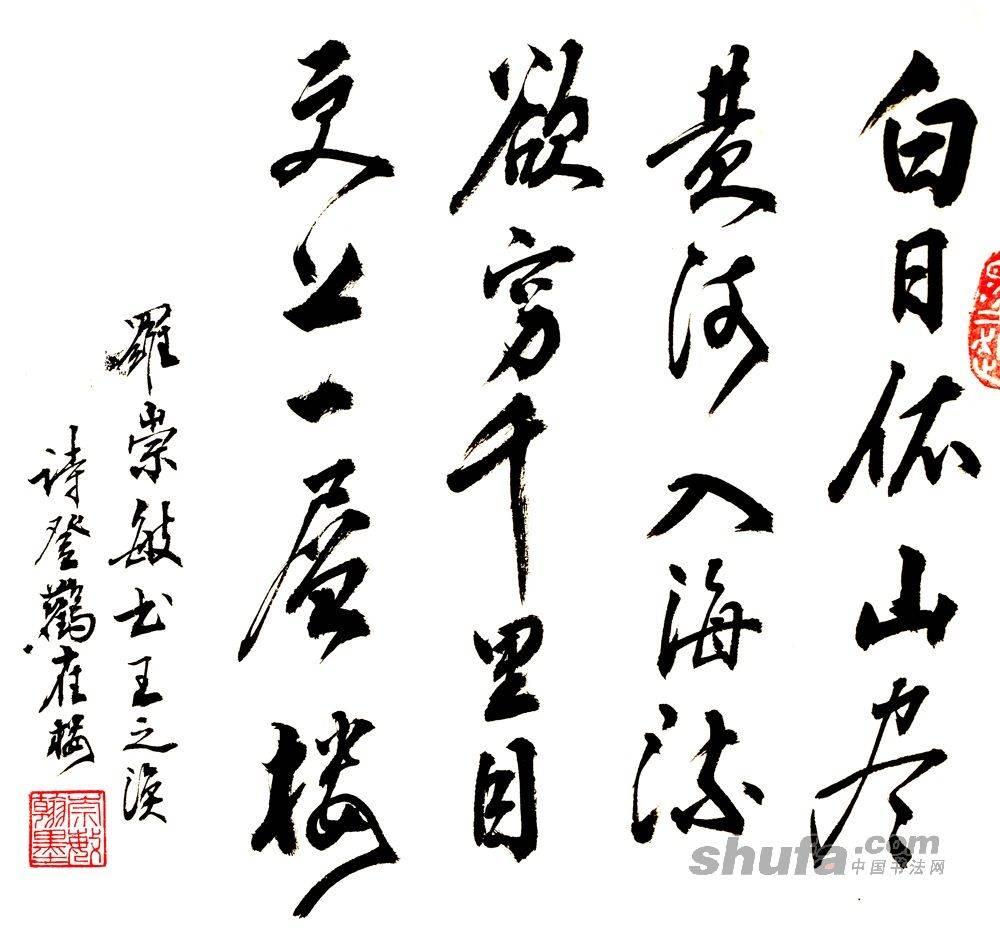 白日依山尽
黄河入海流
欲穷千里目
更上一层楼
羅崇敏书王之涣
诗登鸛雀楼
崇敏翰墨
shufa.com
中国书法网